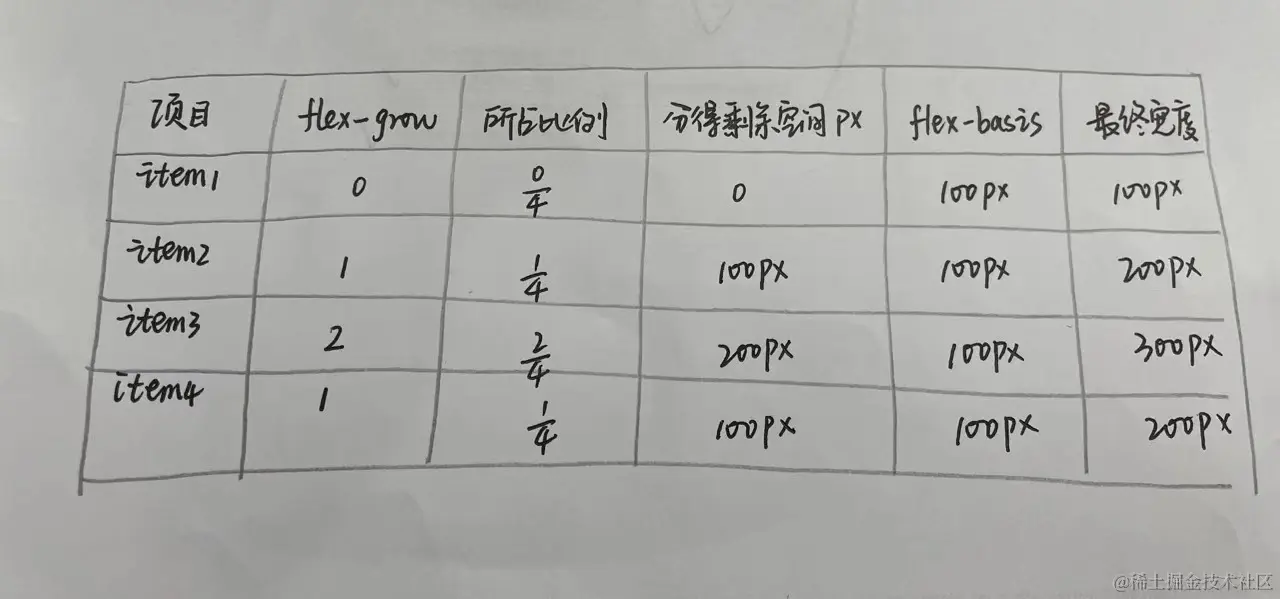 项目 flex-grow 所占比例 分得剩余空间px flex-basis 最终宽度
item1 0 0/4 0 100px 100px
item2 1 1/4 100px 100px 200px
item3 2 2/4 200px 100px 300px
item4 1 1/4 100px 100px 200px
@稀土掘金技术社区